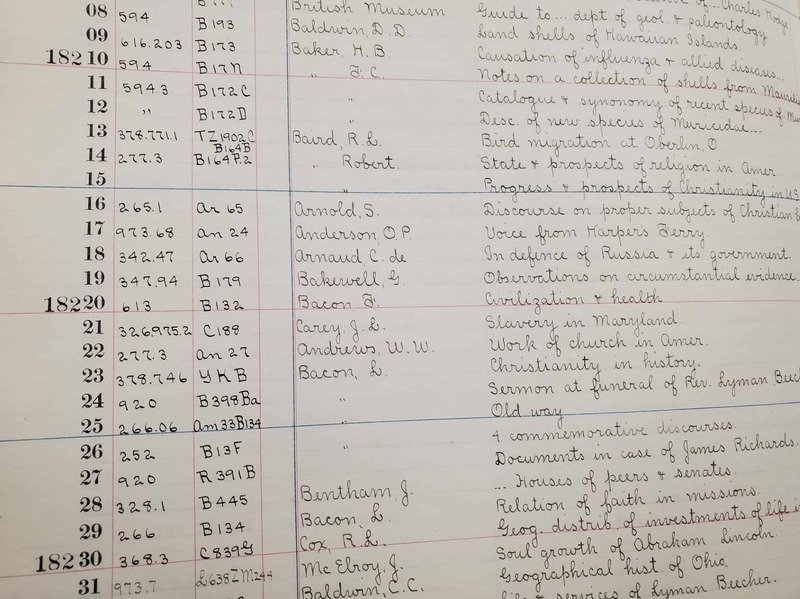 British Museum Guide to... dept of geol. & paleontology
08 594 B193 Baldwin, D.D. Land shells of Hawaiian Islands.
09 616.203 B173 Baker, H.B. Causation of influenza & allied diseases...
18210 594 B17N " F.C. Notes on a collection of shells from Mauriti
11 594.3 B172C " Catalogue & synonomy of recent species of Mu
12 " B172D " Desc. of new species of Muricidae...
13 378.7711 TZ1902C Baird, R.L. Bird migration at Oberlin, O.
B164B
14 277.3 B164P.2 " Robert. State & prospects of religion in Amer
15 " Progress & prospects of Christianity in U.S
16 265.1 Ar 65 Arnold, S. Discourse on proper subjects of Christian b
17 973.68 An 24 Anderson, O.P. Voice from Harpers Ferry.
18 342.47 Ar 66 Arnaud C. de In defence of Russia & its government.
19 347.94 B179 Bakewell, G. Observations on circumstantial evidence.
18220 613 B132 Bacon F. Civilization & health
21 326.975.2 C188 Carey, J.L. Slavery in Maryland.
22 277.3 An 27 Andrews, W.W. Work of church in Amer.
23 378.746 YKB Bacon, L. Christianity in history.
24 920 B398Ba " Sermon at funeral of Rev. Lyman Beech
25 266.06 Am33B134 " Old way
26 252 B13F " 4 commemorative discourses.
27 920 R391B Documents in case of James Richards.
28 328.1 B445 Bentham, J. ... Houses of peers & senates.
29 266 B134 Bacon, L. Relation of faith in missions.
18230 368.3 C839G Cox, R.L. Geog. distrib. of investments of life i
31 973.7 L638ZM244 McElroy, J. Soul growth of Abraham Lincoln.
Baldwin, C.C. Geographical hist. of Ohio.
services of Lyman Beecher.